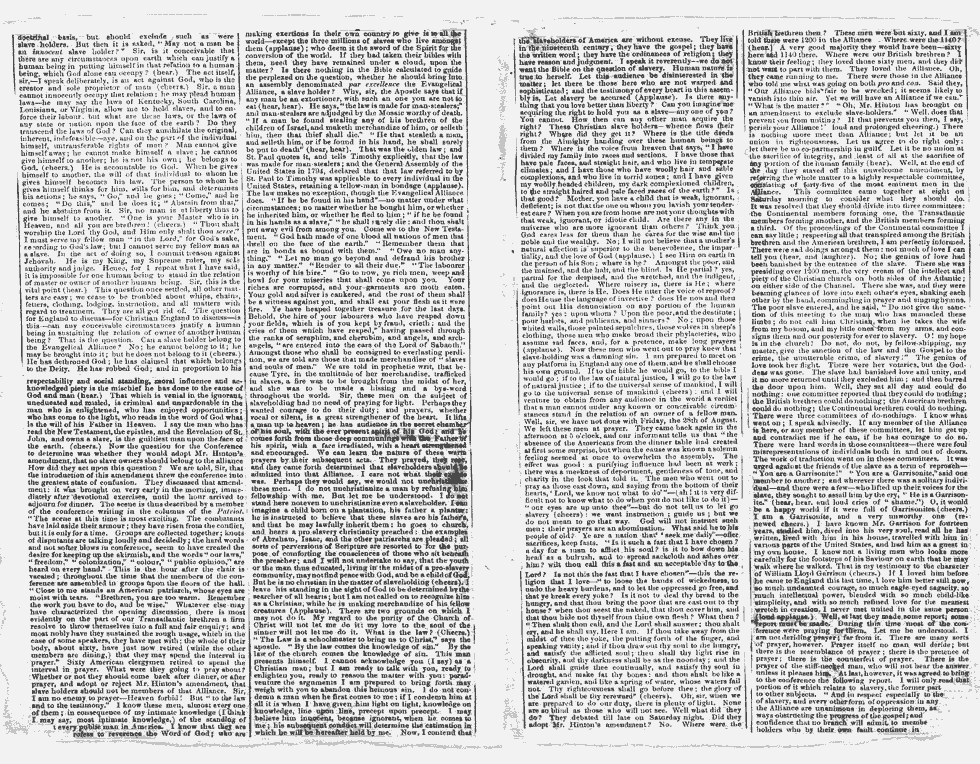 doctrinal basis, but should exclude such as were
slave holders. But then it is asked, "May not a man be
an innocent slave holder?" Sir, is it conceivable that
there are any circumstances upon earth which can justify a
human being in putting himself in that relation to a human
being, which God alone can occupy? (hear.) The act itself,
sir,—I speak deliberately, is an act against God, who is the
creator and sole proprietor of man (cheers.) Sir, a man
cannot innocently occupy that relation; he may plead human
laws—he may say the laws of Kentucky, South Carolina,
Louisiana, or Virginia, allow me to hold slaves, and to en-
force their labour. but what are those laws, or the laws of
any state or nation upon the face of the earth? Do they
transcend the laws of God? Can they annihilate the original,
inherent, indefeasible,—and on the part of the individual
himself, untransferable rights of man? Man cannot give
himself away; he cannot make himself a slave; he cannot
give himself to another; he is not his own; he belongs to
God, (cheers.) He is accountable to God. When he gives
himself to another, the will of that individual to whom he
gives himself becomes his law. The person to whom he
gives himself thinks for him, wills for him, and determines
his actions; he says, "Go," and he goes; "Come," and he
comes; "Do this," and he does it; "Abstain from that,"
and he abstains from it. Sir, no man is at liberty thus to
give himself to another. "One is your Master who is in
Heaven, and all you are brethren! (cheers.) "Thou shalt
worship the Lord thy God, and Him only shalt thou serve."
I must serve my fellow man "in the Lord," for God's sake,
according to God's law; but I cannot serve my fellow man as
a slave. In the act of doing so, I commit treason against
Jehovah. He is my King, my Supreme ruler, my sole
authority and judge. Hence, for I repeat what I have said,
it is impossible for one human being to stand in the relation
of master or owner of another human being. Sir, this is the
vital point (hear.) This question once settled, all other mat-
ters are easy; we cease to be troubled about whips, chains,
fetters, clothing, lodging, instruction, and all matters with
regard to treatment. They are all got rid of. The question
for England to discuss—for Christian England to discuss—is
this—can any conceivable circumstances justify a human
being in sustaining the relation of owner of another human
being? That is the question. Can a slave holder belong to
the Evangelical Alliance? No; he cannot belong to it; he
may be brought into it; but he does not belong to it (cheers.)
He has dethroned God; he has claimed that which belongs
to the Deity. He has robbed God; and in proportion to his
respectability and social standing, moral influence and ac-
knowledged piety is the mischief he has done to the cause of
God and man (hear.) That which is venial in the ignorant,
uneducated and misled, is criminal and unpardonable in the
man who is enlightened, who has enjoyed opportunities;
who has come to the light, who reads in the word of God what
is the will of his Father in Heaven. I say the man who has
read the New Testament, the epistles, and the Revelation of St.
John, and owns a slave, is the guiltiest man upon the face of
the earth (cheers.) Now the question for the Conference
to determine was whether they would adopt Mr. Hinton's
amendment, that no slave owners should belong to the alliance
How did they act upon this question? We are told, Sir, that
the introduction of this amendment threw the conference into
the greatest state of confusion. They discussed that amend-
ment; it was brought on very early in the morning, imme-
diately after devotional exercises, until the hour arrived to
adjourn for dinner. The scene is thus described by a member
of the conference writing in the columns of the Patriot.
"The scene at this time is most exciting. The combatants
have laid aside their armour; they have risen from the conflict,
but it is only for a time. Groups are collected together; knots
of disputants are talking loudly and decidedly; the hard words
and not softer blows in conference, seem to have created the
desire for keeping up the skirmish, and the words "our laws,"
"freedom," "colonization," "colour," "public opinion," are
heard on every hand." This is the hour after the chair is
vacated; throughout the time that the members of the con-
ference are assembled in groups upon the floors of the hall.
"Close to me stands an American patriarch, whose eyes are
moist with tears. "Brethren, you are too warm. Remember
the work you have to do, and be wise." Whatever else may
have characterized the opening discussion, there is most
evidently on the part of our Transatlantic brethren a firm
resolve to throw themselves into a full and fair enquiry; and
most nobly have they sustained the rough usage, which in the
case of some speakers, they have just met with; the whole of their
body, about sixty, have just now retired (while the other
members are dining,) that they may spend the interval in
prayer." Sixty American clergymen retired to spend the
interval in prayer. What were they going to pray about?
Whether or not they should come back after dinner, or after
prayer, and adopt or reject Mr. Hinton's amendment, that
slave holders should not be members of that Alliance. Sir,
I am no enemy to prayer—Heaven forbid! But "to the law
and to the testimony." I know these men, almost every one
of them; in consequence of my knowledge of them (I think
I may say, most intimate knowledge,) of the standing of
every public man in America. I know that they are
refuse to reverence the Word of God; who are
making exertions in their own country to give it to all the
world—except the three millions of slaves who live amongst
them (applause); who deem it the sword of the Spirit for the
conversion of the world. If they had taken their bibles with
them, need they have remained under a cloud, upon the
matter? Is there nothing in the Bible calculated to guide
the perplexed on the question, whether he should bring into
an assembly denominated par excellence the Evangelical
Alliance, a slave holder? Why, sir, the Apostle says that if
any man be an extortioner, with such an one you are not to
eat (hear, hear). He says, "the law is made for man-stealers;"
and man-stealers are adjudged by the Mosaic worthy of death.
"If a man be found stealing any of his brethren of the
children of Israel, and maketh merchandize of him, or selleth
him, then that thief shall die." "He that stealeth a man,
and selleth him, or if he be found in his hand, he shall surely
be put to death" (hear, hear). That was the olden law; and
St. Paul quotes it, and tells Timothy explicitly, that the law
was made for man-stealers; and the General Assembly of the
United States in 1794, declared that that law referred to by
St. Paul to Timothy was applicable to every individual in the
United States, retaining a fellow-man in bondage (applause).
The law makes no exception, though the Evangelical Alliance
does. "If he be found in his hand"—no matter under what
circumstances; no matter whether he bought him, or whether
he inherited him, or whether he stole him; "if he be found
in his hands as a slave," "he shall surely die; and thou shalt
put away evil from among you. Come we to the New Testa-
ment. "God hath made of one blood all nations of men that
dwell on the face of the earth." "Remember them that
are in bonds as bound with them." "Owe no man any-
thing." "Let no man go beyond and defraud his brother
in any matter." "Render to all their due." "The labourer
is worthy of his hire." "Go to now, ye rich men, weep and
howl for your miseries that shall come upon you. Your
riches are corrupted, and your garments are moth eaten.
Your gold and silver is cankered, and the rust of them shall
be a witness against you, and shall eat your flesh as it were
fire. Ye have heaped together treasure for the last days.
Behold, the hire of your labourers who have reaped down
your fields, which is of you kept by fraud, crieth; and the
cries of them which have reaped," having passed through
the ranks of seraphim, and cherubim, and angels, and arch-
angels, "are entered into the ears of the Lord of Sabaoth."
Amongst those who shall be consigned to everlasting perdi-
tion, we are told are those that make merchandize of "slaves
and souls of men." We are told in prophetic writ, that be-
cause Tyre, in the multitude of her merchandize, trafficked
in slaves, a fire was to be brought from the midst of her,
and she was to be made a hissing and a bye-word
throughout the world. Sir, these men on the subject of
slaveholding had no need of praying for light. Perhaps they
wanted courage to do their duty; and prayers, whether
vocal or silent, is a great strengthener of the heart. It lifts
a man up to heaven; he has audience in the secret chamber
of his soul, with the ever present spirit of his God; and he
comes forth from those deep communings with the Father of
his spirit, with a face irradiated, with a heart strengthened
and encouraged. We can learn the nature of these men's
prayers by their subsequent acts. They prayed, they rose,
and they came forth determined that slaveholders should be
admitted into that Alliance. I care not what their
was. Perhaps they would say, we would not unchristianize
these men. I do not unchristianize a man by refusing him
fellowship with me. But let me be understood. I do not
stand here now to unchristianize even a slaveholder. I can
imagine a child born on a plantation, his father a planter;
he is instructed to believe that these slaves are his father's,
and that he may lawfully inherit them; he goes to church
and hears a pro slavery christianity preached; the example
of Abraham, Isaac, and the other patriarchs are pleaded; all
sorts of perversions of Scripture are resorted to for the pur-
pose of comforting the consciences of those who sit beneath
the preacher; and I will not undertake to say, that the youth
or the man thus educated, living in the midst of a pro-slavery
community, may not find peace with God, and be a child of God.
But he is no christian in the matter of slaveholding (cheers). I
leave his standing in the sight of God to be determined by the
searcher of all hearts; but I am not called on to recognize him
as a Christian, while he is making merchandize of his fellow
creatures (Applause). There are two grounds on which I
may not do it. My regard to the purity of the Church of
Christ will not let me do it; my love to the soul of the
sinner will not let me do it. What is the law? (Cheers.)
"The Law is a schoolmaster to bring us to Christ," says the
apostle. "By the law comes the knowledge of sin." By the
law of the church comes the knowledge of sin. This man
presents himself. I cannot acknowledge you (I say) as a
Christian man; but I am ready to talk with you, ready to
enlighten you, ready to reason the matter with you; perad-
venture the arguments I am prepared to bring forth may
weigh with you to abandon this heinous sin. I do not con-
demn a man when he first comes to me; if I condemn him at
all it is when I have given him light on light, knowledge on
knowledge, line upon line, precept upon precept. I may
believe him innocent, because ignorant, when he comes to
me; his subsequent conduct will determine the estimation in
which he will be hereafter held by me. Now, I contend that
the slaveholders of America are without excuse. They live
in the nineteenth century; they have the gospel; they have
the written word; they have the ordinances of religion; they
have reason and judgment. I speak it reverently—we do not
want the Bible on the question of slavery. Human nature is
true to herself. Let this audience be disinterested in the
matter; let there be those who are not warped and
sophisticated; and the testimony of every heart in this assem-
bly is, Let slavery be accursed (Applause). Is there any-
thing that you love better than liberty? Can you imagine me
acquiring the right to hold you as a slave—any one of you?
Cannot. How then can any other man acquire the
right? These Christian slave holders—whence flows their
right? Where did they get it? Where is the title deeds
from the Almighty handing over these human beings to
them? Where is the voice from heaven that says, "I have
divided my family into races and sections. I have those that
have pale faces, and straight hair, and who live in temperate
climates; and I have those who have woolly hair and sable
complexions, and who live in torrid zones; and I have given
my wolly headed children, my dark complexioned children,
to the straight haired and pale faced races of the earth?" Is
that good? Mother, you have a child that is weak, ignorant,
deficient; is not that the one on whom you lavish your tender-
est care? When you are from home are not your thoughts with
that weak, ignorant, or idiotic child. Are there any in the
universe who are more ignorant than others? Think you
God cares less for them than he cares for the wise and the
noble and the wealthy. No; I will not believe that a mother's
natural affection is superior to the benevolence, the impar-
tiality, and the love of God (applause.) I see Him on earth in
the person of his Son; where is he? Amongst the poor, and
the maimed, and the halt, and the blind. Is He partial? yes,
partial for the despised, and the wretched, and the indigent,
and the neglected. Where misery is, there is He; where
ignorance is, there is He. Does He utter the voice of reproof?
does He use the language of invective? does He now and then
point out His denunciation on any portion of the human
family? yes; upon whom? Upon the poor, and the destitute;
poor harlots, and publicans, and sinners? No; upon those
whited walls, those painted sepulchres, those wolves in sheep's
clothing, those men who make broad their phylacteries, who
assume sad faces, and, for a pretense, make long prayers
(applause). Now these men who went out to pray knew that
slave-holding was a damning sin. I am prepared to meet on
any platform in England any one of them, and he shall choose
his own ground. If to the bible he would go, to the bible I
would go; if to the law of natural justice, I will go to the law
of natural justice; if to the universal sense of mankind, I will
go to the universal sense of mankind (cheers); and I will
venture to obtain from any audience in the world a verdict
that a man cannot under any known or conceivable circum-
stances stand in the relation of an owner of a fellow man.
Well, sir, we have not done with Friday, the 28th of August.
We left these men at prayer. They came back again in the
afternoon at 5 o'clock, and our informant tells us that "the
absence of the Americans from the dinner table had created
at first some surprise, but when the cause was known a solemn
feeling seemed at once to overwhelm the assembly. The
effect was good: a purifying influence had been at work;
there was a meekness of deportment, gentleness of tone, and
charity in the look that told it. The men who went out to
pray as those cast down, and saying from the bottom of their
hearts, 'Lord, we know not what to do'"—(ah! it is very dif-
ficult not to know what to do when you do not like to do it)—
"our eyes are up unto thee"—but do not tell us to let go
slavery (cheers) we want instruction; guide us; but we
do not mean to go that way. God will not instruct such
men; their prayers are an abomination. What said he to his
people of old? Ye are a nation that "seek me daily"—offer
sacrifices, keep fasts. "Is it such a fast that I have chosen?
a day for a man to afflict his soul? is it to bow down his
head as a bulrush, and to spread sackcloth and ashes over
him? wilt thou call this a fast and an acceptable day to the
Lord? Is not this the fast that I have chosen"—this the re-
ligion that I love—"to loose the bands of wickedness, to
undo the heavy burdens, and to let the oppressed go free, and
that ye break every yoke? Is it not to deal thy bread to the
hungry, and that thou bring the poor that are cast out to thy
house? when thou seest the naked, that thou cover him, and
that thou hide not thyself from thine own flesh? What then?
"Then shalt thou call, and the Lord shall answer; thou shalt
cry, and he shall say, Here I am. If thou take away from the
midst of thee the yoke, the putting forth of the finger, and
speaking vanity; and if thou draw out thy soul to the hungry,
and satisfy the afflicted soul; then shall thy light rise in
obscurity, and thy darkness shall be as the noonday; and the
Lord shall guide thee continually, and satisfy thy soul in
drought, and make fat thy bones; and thou shalt be like a
watered garden, and like a spring of water, whose waters fail
not. Thy righteousness shall go before thee; the glory of
the Lord shall be thy rereward" (cheers). Oh, sir, when we
are prepared to do our duty, there is plenty of light. None
are so blind as those who will not see. Well what did they
do? They debated till late on Saturday night. Did they
adopt Mr. Hinton's amendment? No. Where were the
British brethren then? These men were but sixty, and I am
told there were 1200 in the Alliance. Where were the 1140?
(hear.) A very good majority they would have been—sixty
here and 1140 there. Where were our Brethren? I know
their feeling; they loved those sixty men, and they did
not want to part with them. They loved the Alliance. Oh,
they came running to me. There were those in the Alliance
who told me what was going on both pro and con. Said they,
"Our Alliance bids fair to be wrecked; it seems likely to
vanish into thin air. Yet we will have an Alliance if we can."
"What is the matter?" "Oh, Mr. Hinton has brought on
an amendment to exclude slave-holders." "Well, does that
prevent you from uniting? If that prevents you then, I say,
perish your Alliance! (loud and prolonged cheering). There
is nothing more meet than Alliance; but let it be an
union in righteousness. Let us agree to do what is right.
Let there be no co-partnership in guilt. Let it be no union at
the sacrifice of integrity, and least of all at the sacrifice of
any portion of the human family (hear). Well, at the end of
the day they staved off this unwelcome amendment, by
referring the whole matter to a highly respectable committee,
consisting of forty-five of the most eminent men in the
Alliance. This committee came together at eight on
Saturday morning to consider what they should do.
It was resolved that they should divide into three committees:
the Continental members forming one, the Transatlantic
members forming another, and the British members forming
a third. Of the proceedings of the Continental committee I
can say little; respecting all that transpired among the British
brethren and the American brethren, I am perfectly informed.
There were sad doings amongst them; not much of love I can
tell you (hear, and laughter). No; the genius of love had
been banished by the entrance of the slave. There she was
presiding over 1200 men, the very cream of the intellect and
piety of the Christian church on both sides of the Atlantic;
on either side of the Channel. There she was, and they were
beaming glances of love into each other's eyes, shaking each
other by the hand, commingling in prayer and mingling hymns.
The poor slave entered, and he said, "Do not give the sanc-
tion of this meeting to the man who has manacled these
limbs; do not call him Christian, when he takes the wife
from my bosom, and my little ones from my arms, and con-
signs them and our posterity for ever to slavery. O! my hope
is in the church! Do not, do not, by fellow-shipping, my
master, give the sanction of the law and the Gospel to the
crime, the unutterable crime, of slavery!" The genius of
love took her flight. There were her votaries, but the God-
dess was gone. The slave had banished love and unity, and
it no more returned until they excluded him; and then barred
the door upon him. Well, they sat all day and could do
nothing: one committee reported that they could do nothing;
the British brethren could do nothing; the American brethren
could do nothing; the Continental brethren could do nothing.
There were three committees of do-nothings. I know what
went on; I speak advisedly. If any member of the Alliance
is here, or any member of these committees, let him get up
and contradict me if he can, if he has courage to do so.
There were hard words in those committees—there were foul
misrepresentations of individuals both in and out of doors.
The work of traduction went on in those committees. It was
urged against the friends of the slave as a term of reproach—
"You are a Garrisonite!" "You are a Garrisonite," said one
member to another; and wherever there was a solitary indivi-
dual—and there were a few—who lifted up their voices for the
slave, they sought to assail him by the cry, "He is a Garrison-
ite!" (hear, hear, and cries of shame, shame.") O, it would
be a happy world if it were full of Garrisonites (cheers.)
I am a Garrisonite, and a very unworthy one (re-
newed cheers.) I have known Mr. Garrison for fourteen
years, studied him, dived into his very soul, read all he has
written, lived with him in his house, travelled with him in
various parts of the United States, and had him as a guest in
my own house. I know not a living man who looks more
carefully for the footsteps of his Saviour on earth that he may
walk where he walked. That is my testimony to the character
of William Lloyd Garrison (cheers.) If I loved him before
he came to England this last time, I love him better still now;
so much undaunted courage, so much eagle eyed sagacity, so
much intellectual power, blended with so much child-like
simplicity, and with so much refined love for the meanest
wretch in creation, I never met united in the same person
(loud applause.) Well, at last they made some report; some
report must be made. During this time most of the con-
ference were praying for them. Let me be understood. I
am not deriding prayer; far from it. There are many sorts
of prayer, however. Prayer itself no man will deride; but
there is the resemblance of prayer; there is the pretence of
prayer; there is the counterfeit of prayer. There is the
prayer of the stiff-necked man, who will not hear the answer
unless it pleases him. At last, however, it was agreed to bring
to the conference the following report. I will only read that
portion of it which relates to slavery, the former part
to other subjects. "And in respect especially to the
of slavery, and every other form of oppression in any
the Alliance are unanimous in deploring them, as
ways obstructing the progress of the gospel; and
confidence that no branch will admit to membe-
holders who by their own fault continue in